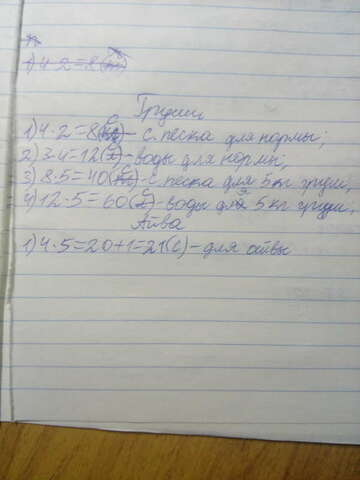 1) 4·2=8
Груши
1) 4·2=8(с) - с. песка для нормы;
2) 3·4=12(с) - воды для нормы;
3) 8·5=40(с) - с. песка для 5 кг груш;
4) 12·5=60(с) - воды для 5 кг груш;
Айва
1) 4·5=20+1=21(с) - для айвы